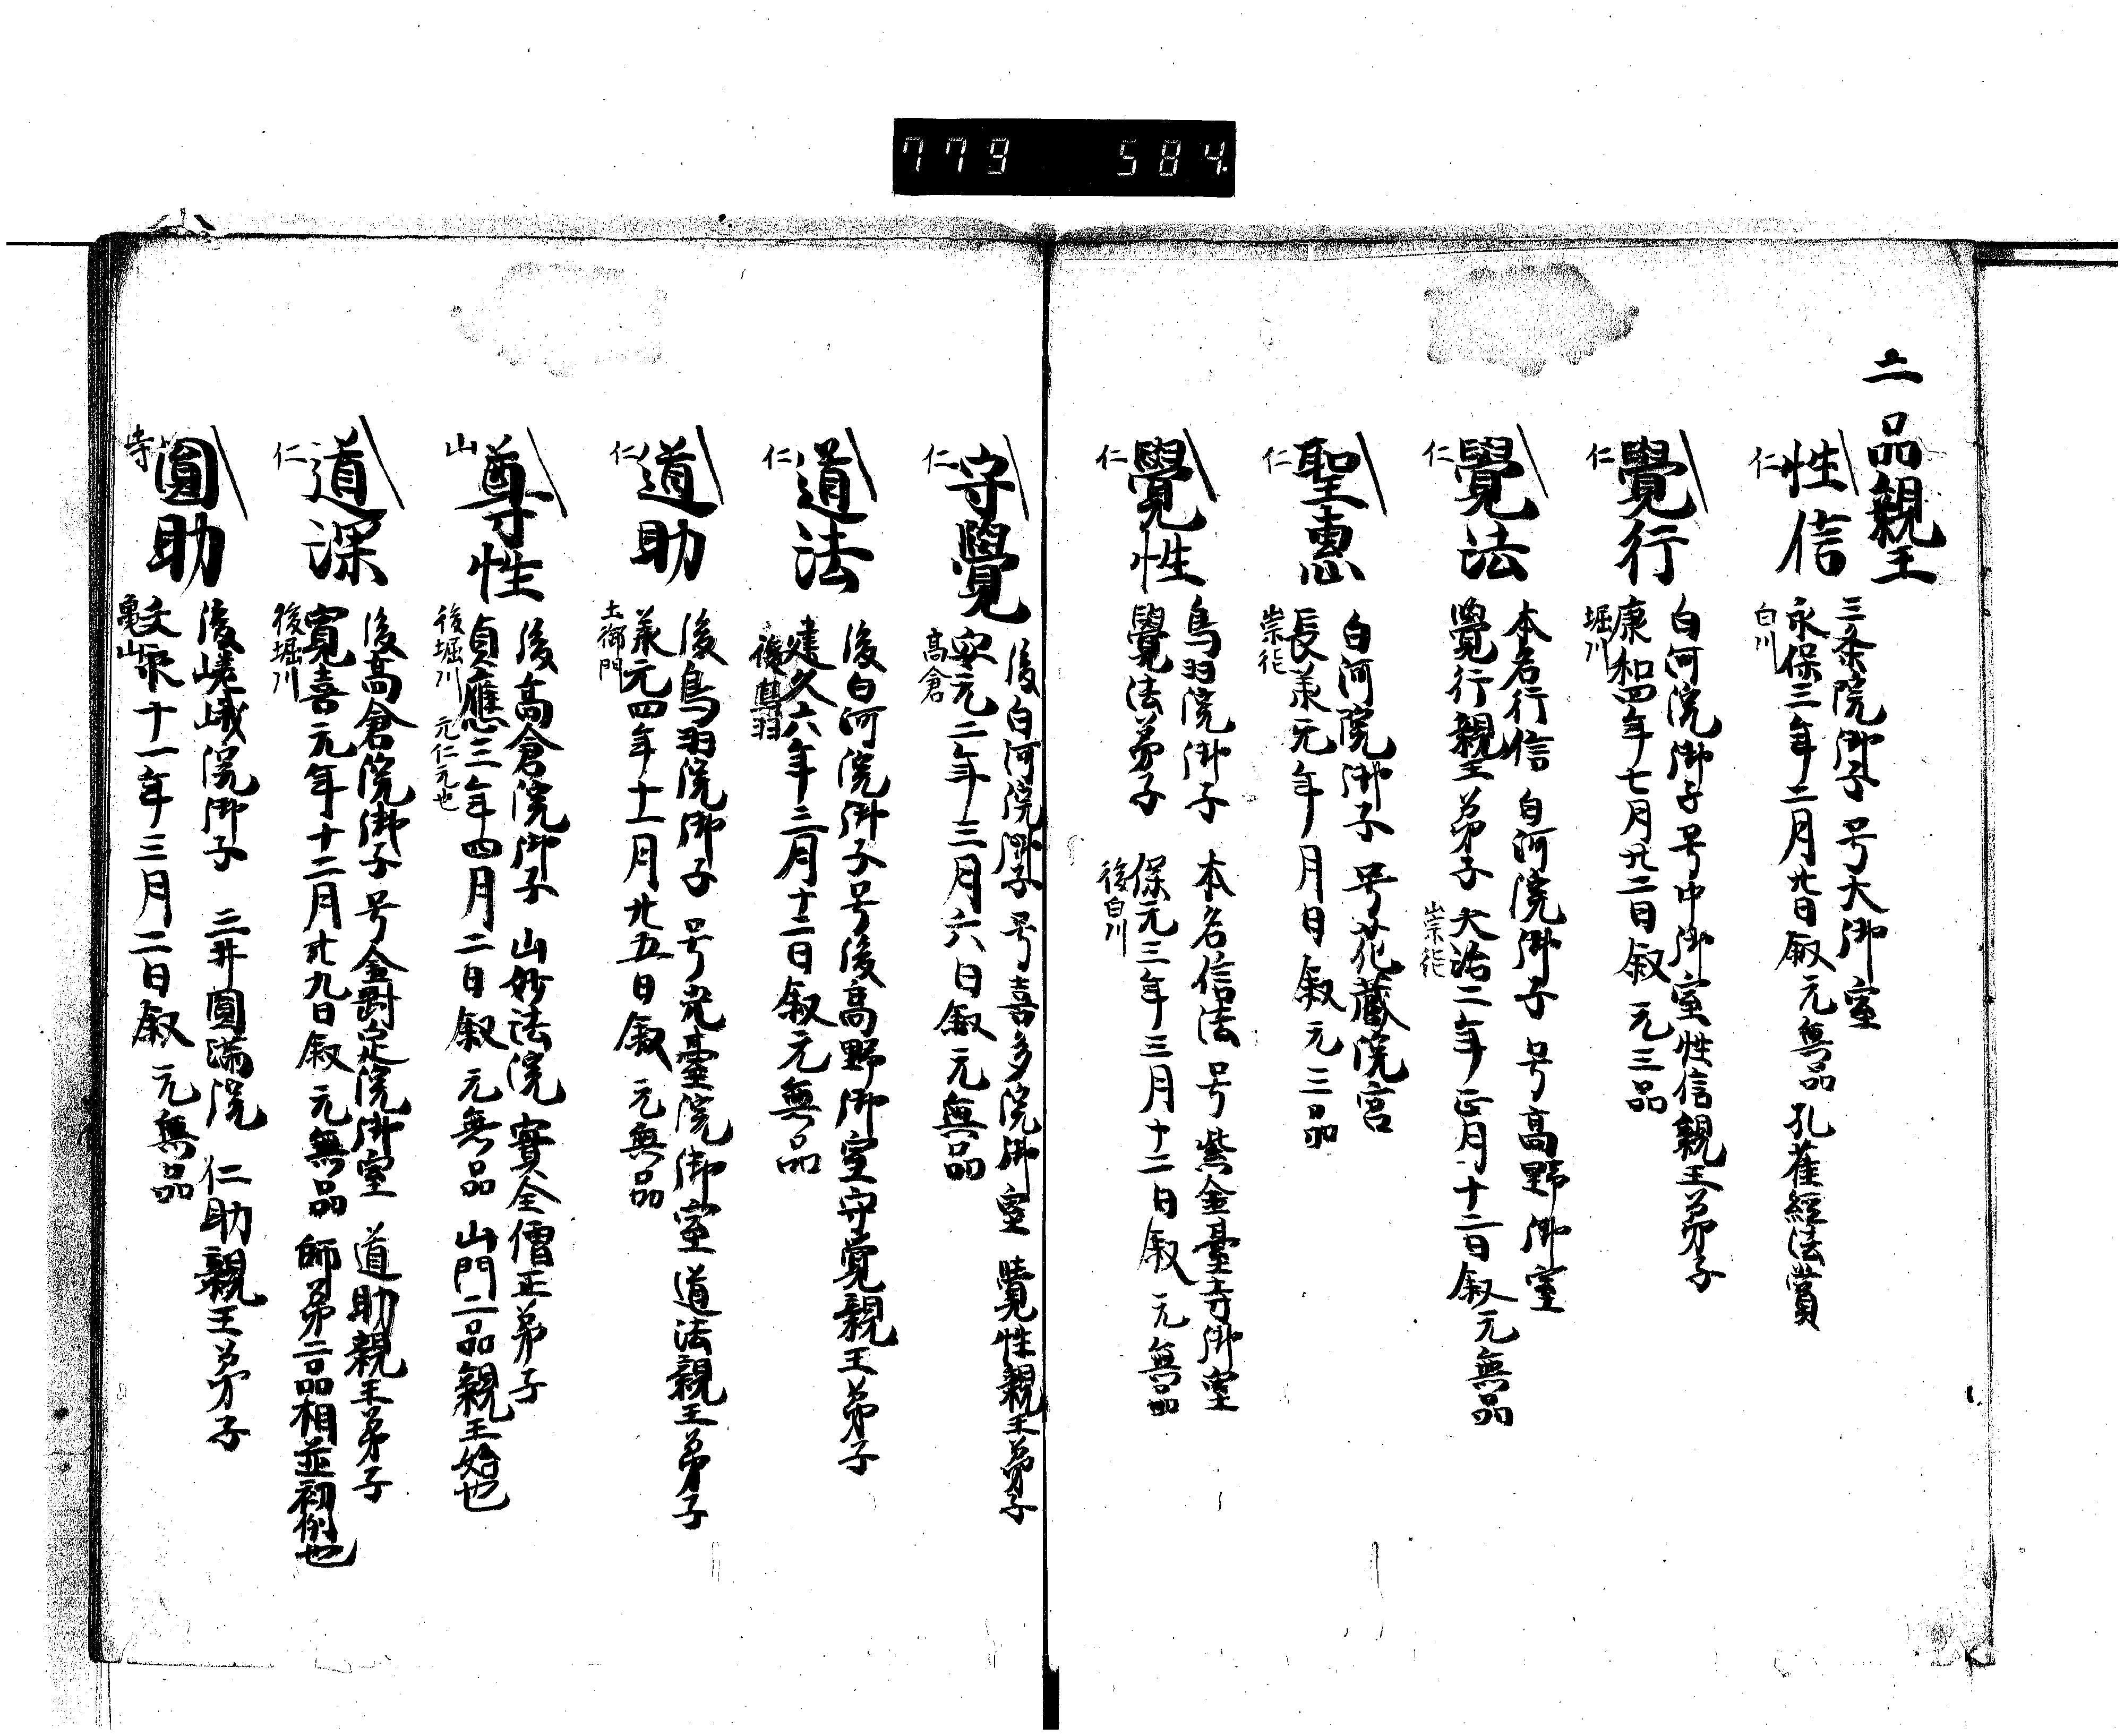 779 584
二品親王
仁 性信
三条院御子 号大御室
永保三年二月廿日叙 元無品 孔雀經法賞
白川
仁 覺行
白河院御子 号中御室 性信親王弟子
康和四年七月廿二日叙 元三品
堀川
仁 覺法
本名行信 白河院御子 号高野御室
覺行親王弟子 大治二年正月十二日叙 元無品
崇徳
仁 聖惠
白河院御子 号花藏院宮
長承元年月日叙 元三品
崇徳
仁 覺性
鳥羽院御子 本名信法 号紫金臺寺御室
覺法弟子 保元三年三月十二日叙 元無品
後白川
仁 守覺
後白河院御子 号喜多院御室 覺性親王弟子
安元二年三月六日叙 元無品
高倉
仁 道法
後白河院御子 号後高野御室 守覚親王弟子
建久六年三月十二日叙 元無品
後鳥羽
仁 道助
後鳥羽院御子 号光臺院御室 道法親王弟子
承元四年十一月廿五日叙 元無品
土御門
山 尊性
後高倉院御子 山妙法院 實全僧正弟子
貞應三年四月二日叙 元無品 山門二品親王始也
後堀川 元仁元也
仁 道深
後高倉院御子 号金剛定院御室 道助親王弟子
寛喜元年十二月廿九日叙 元無品 師弟二品相並初例也
後堀川
寺 圓助
後嵯峨院御子 三井圓滿院 仁助親王弟子
文永十一年三月二日叙 元無品
亀山